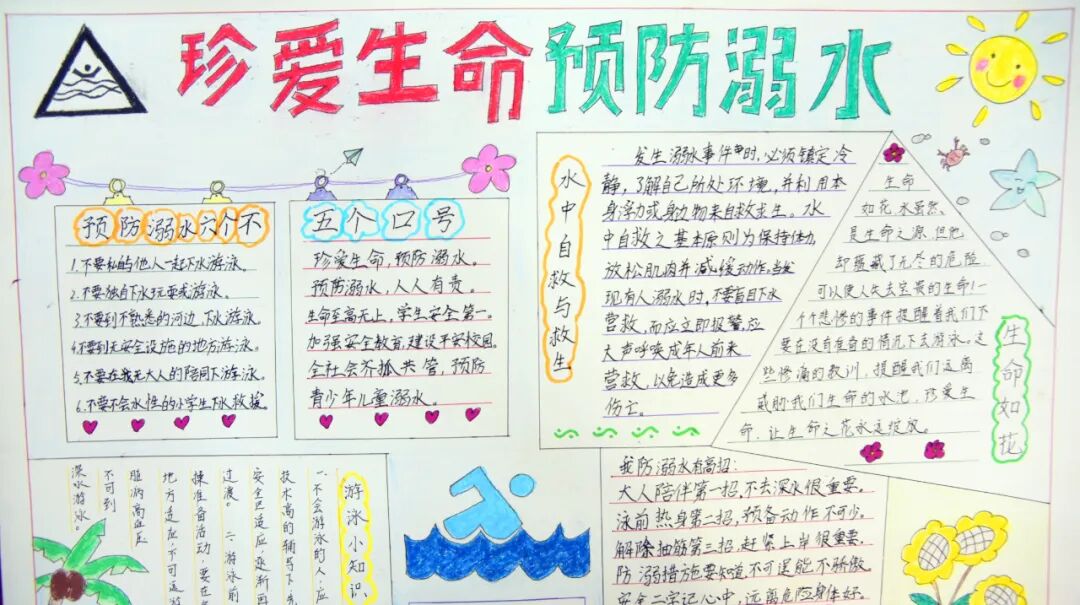 珍爱生命预防溺水
预防溺水六个不
1.不要私自与他人一起下水游泳。
2.不要独自下水玩耍或游泳。
3.不要到不熟悉的河边下水游泳。
4.不要到无安全设施的地方游泳。
5.不要在我无大人的陪同下游泳。
6.不要不会水性的小学生下水救援。
五个口号
珍爱生命,预防溺水。
预防溺水,人人有责。
生命至高无上,学生安全第一。
加强安全教育,建设平安校园。
全社会齐抓共管,预防
青少年儿童溺水。
水中自救与救生
发生溺水事件时,必须镇定冷
静,了解自己所处环境,并利用本
身浮力或身边物来自救求生。水
中自救之基本原则为保持体力,
放松肌肉并减缓动作,当发
现有人溺水时,不要盲目下水
营救,而应立即报警,应
大声呼唤成年人前来
营救,以免造成更多
伤亡。
生命
如花,水虽然
是生命之源,但他
却蕴藏了无尽的危险
可以使人失去宝贵的生命!一
个个悲惨的事件提醒着我们不
要在没有准备的情况下去游泳。这
些惨痛的教训,提醒我们远离
威胁我们生命的水池,珍爱生
命,让生命之花永远绽放。
生命如花
游泳小知识
一.不会游泳的人,应
技术高的辅导下,
安全区适应,逐渐再
过渡。 二.游泳前
操准备活动,要在
地方适应,不可远游
脏病高血压
不可到
深水游泳。
我防溺水有高招:
大人陪伴第一招,不去深水很重要。
泳前热身第二招,预备动作不可少。
解除抽筋第三招,赶紧上岸很重要。
防溺措施要知道,不可逞能不骄傲。
安全二字记心中,远离危险身体好。